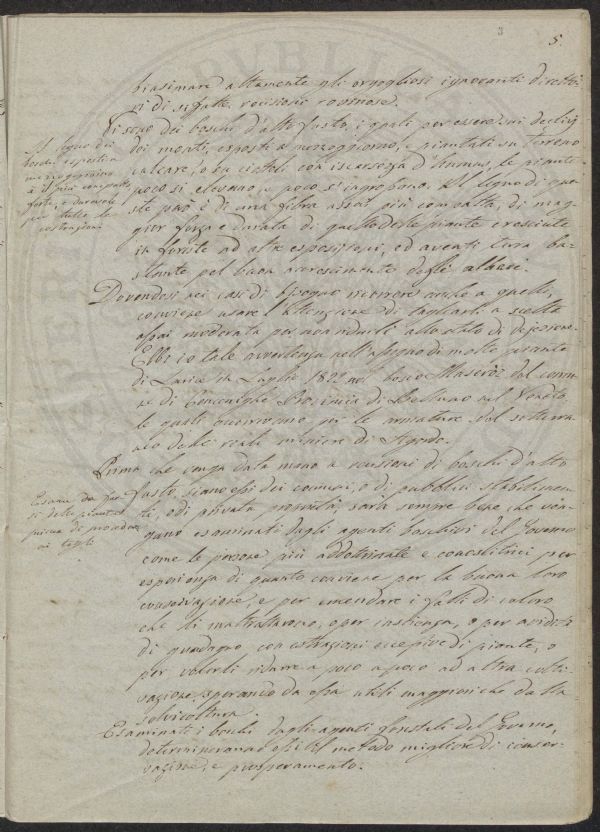 5.
biasimare altamente gli orgogliosi ignoranti diretto-
ri di sì fatte recisioni rovinose.
Vi sono dei boschi d'alto fusto, i quali per essere sui declivj
dei monti, esposti a mezzogiorno, e piantati su terreno
calcare, o su ciottoli con iscarsezza d'humus, le piante
poco si elevano, e poco s'ingrossano. Il legno di que-
ste però è di una fibra assai più compatta, di mag-
gior forza e durata di quello delle piante cresciute
in foreste ad altre esposizioni, ed aventi terra ba-
stante pel buon accrescimento degli alberi.
Il legno dei
boschi esposti a
mezzogiorno
è il più compatto,
forte, e durevole
per tutte le
costruzioni
Dovendosi nei casi di bisogno ricorrere anche a quelli,
conviene usare l'attenzione di tagliarli a scelta
assai moderata per non ridurli allo stato di
Ebbi io tale avvertenza nell'assegno di molte piante
di Larice in Luglio 1822 nel bosco Maseroz del comu-
ne di Cencenighe Provincia di Belluno nel Veneto
le quali occorrevano per le armature del sotterra-
neo delle reali miniere di Agordo.
Prima che venga data mano a recisioni di boschi d'alto
fusto, siano essi dei comuni, o di pubblici stabilimen-
ti, o di privata proprietà, sarà sempre bene che ven-
gano esaminati dagli agenti boschivi del Governo
come le persone più addottrinate e conoscitrici per
esperienza di quanto conviene per la buona loro
conservazione, e per emendare i falli di coloro
che li maltrattarono, o per insipienza, o per avidità
di guadagno con estrazioni eccessive di piante, o
per volerli ridurre a poco a poco ad altra colti-
vazione sperando da essa utili maggiori che dalla
selvicoltura.
Esame da far-
si delle piante
prima di procedere
ai tagli
Esaminati i boschi dagli agenti forestali del Governo,
determineranno essi il metodo migliore di conser-
vazione, e prosperamento.